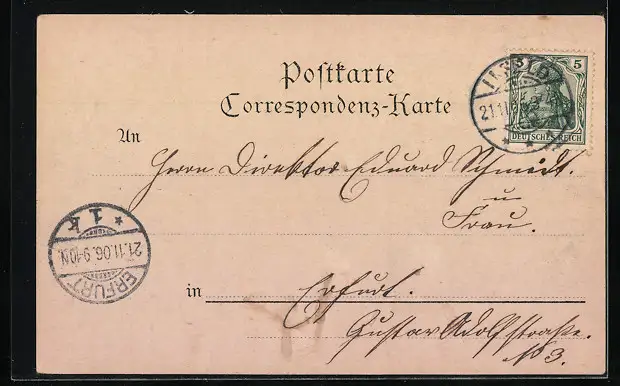 Postkarte
Correspondenz-Karte
5
DEUTSCHES REICH
ILFELD
21.11.06
An
Herrn Direktor Eduard Schmidt.
u
Frau.
1 k
21.11.06.9-10N.
ERFURT
in Erfurt.
Gustav Adolfstraße.
No 3.